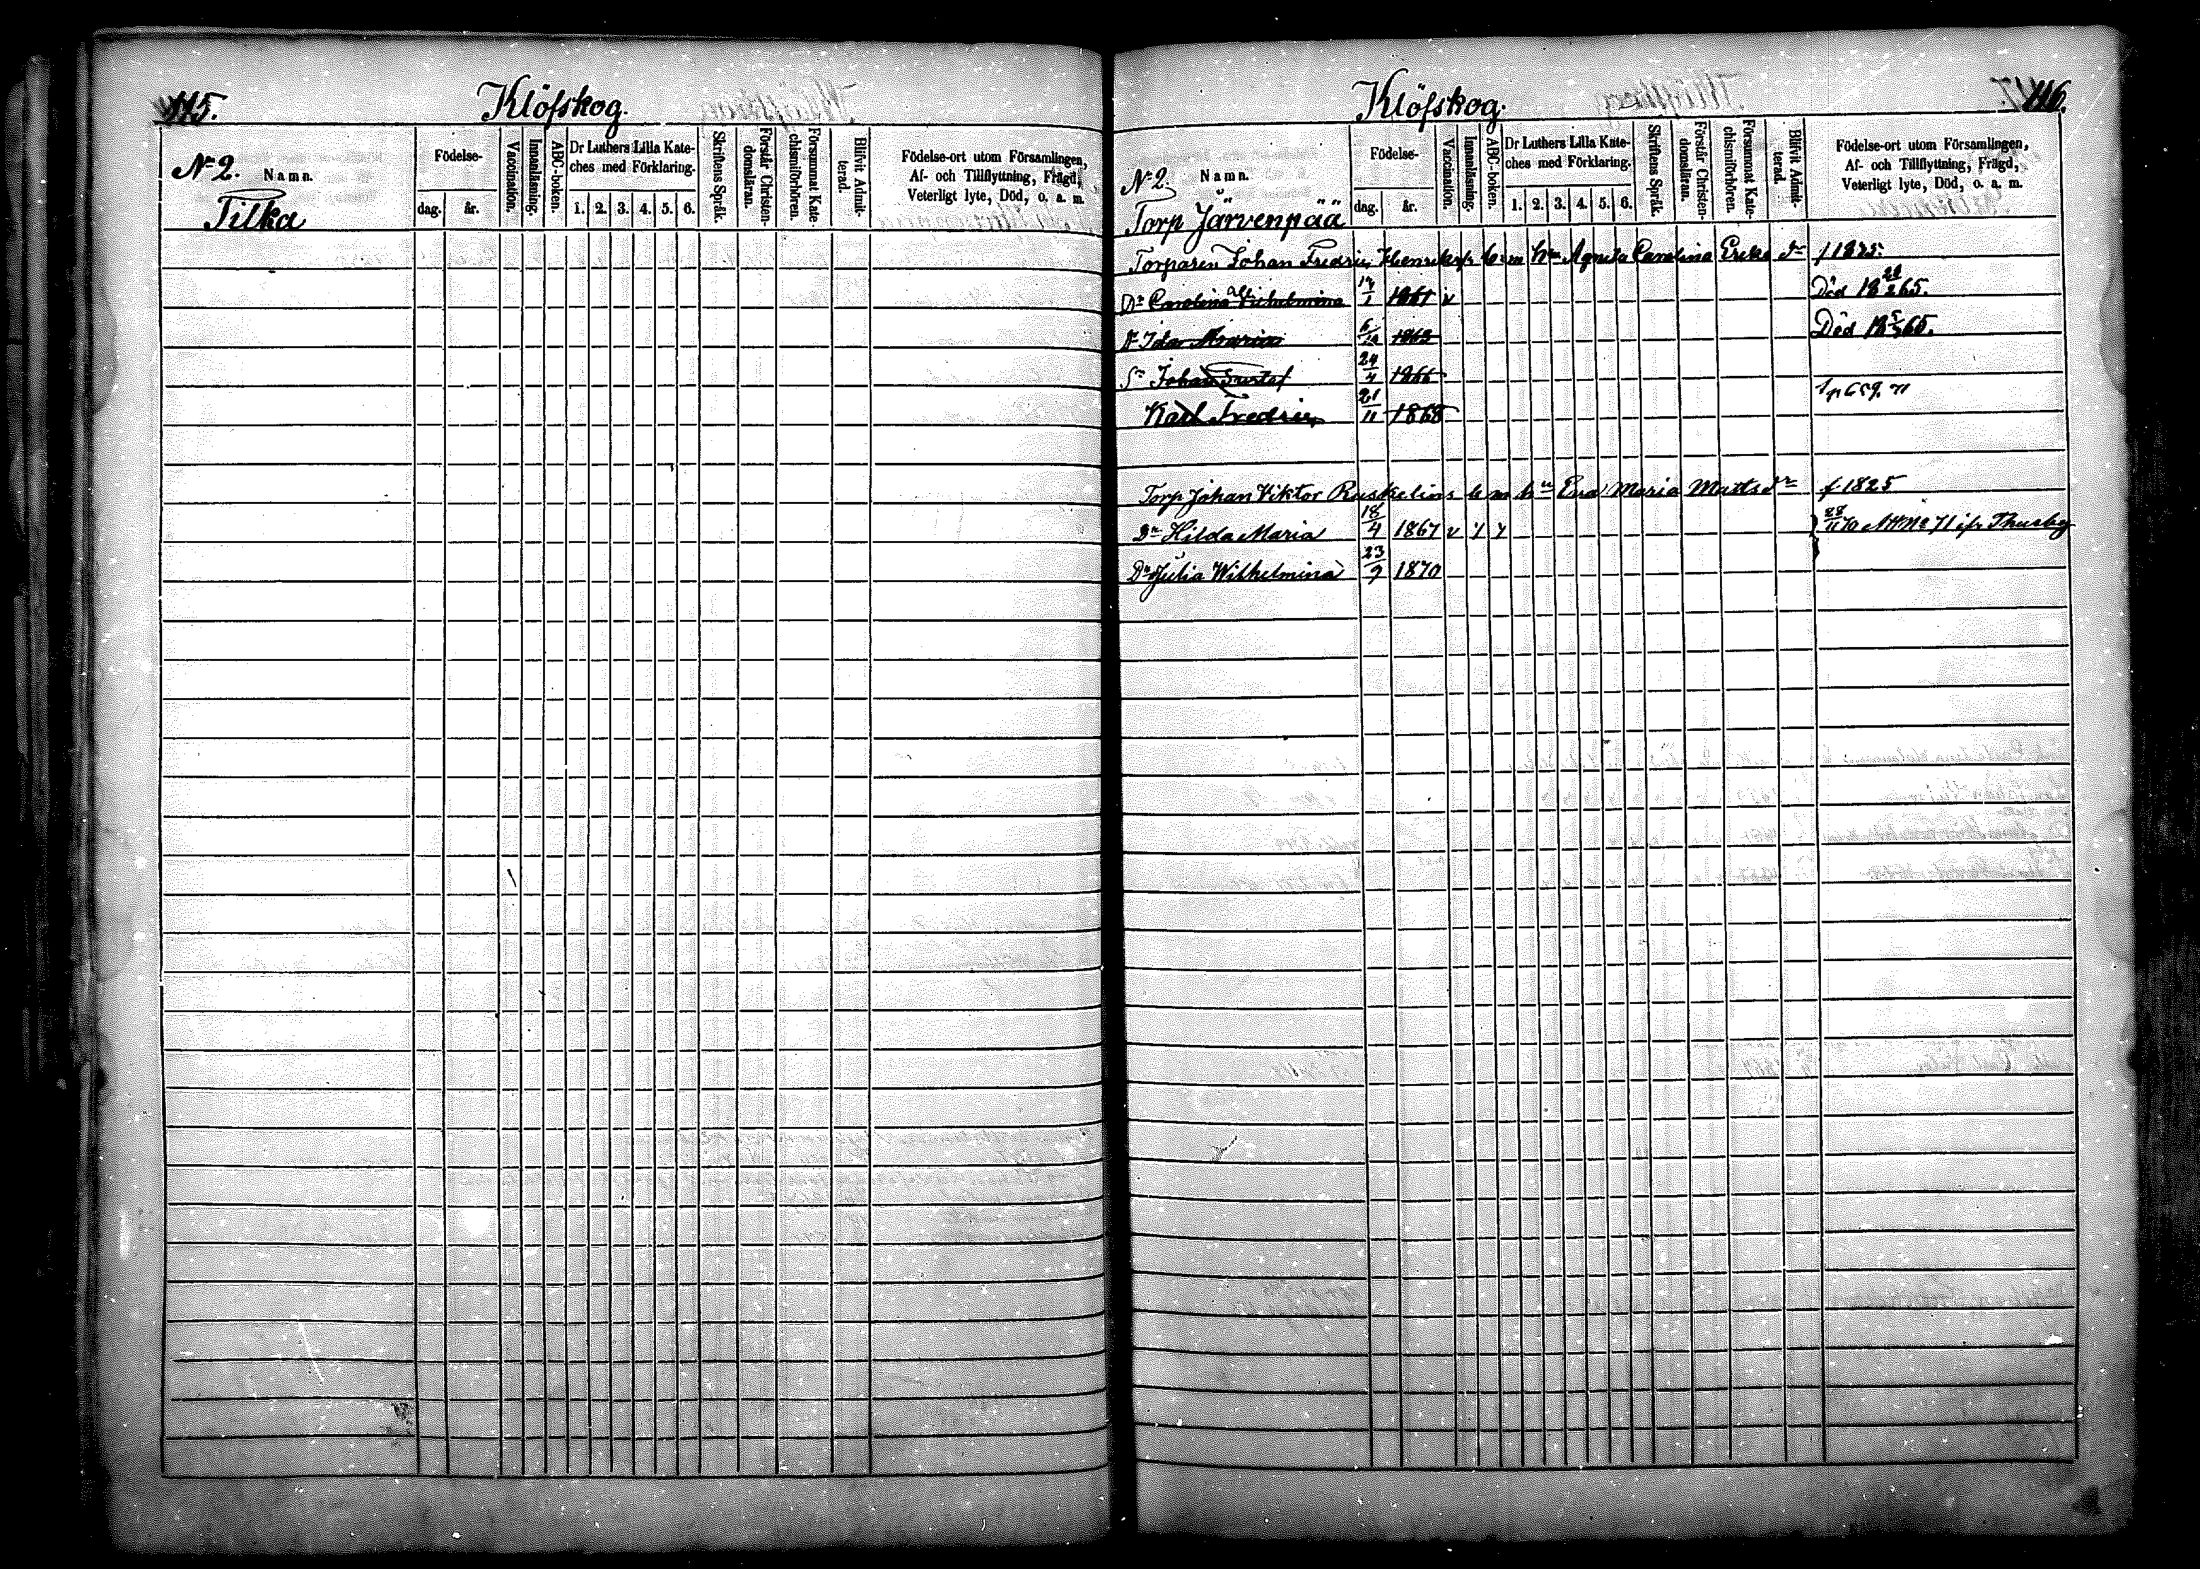 115. Klöfskog.
No 2. Namn.
Tilka
Födelse-
dag. år.
Vaccination.
Innanläsning.
ABC-boken.
Dr Luthers Lilla Kate-
ches med Förklaring.
1. 2. 3. 4. 5. 6.
Skriftens Språk.
Förstår Christen-
domsläran.
Försummat Kate-
chismiförhören.
Blifvit Admit-
terad.
Födelse-ort utom Församlingen,
Af- och Tillflyttning, Frägd,
Veterligt lyte, Död, o. a. m.
Klöfskog. 116.
No 2. Namn.
Torp Järvenpää
Födelse-
dag. år.
Vaccination.
Innanläsning.
ABC-boken.
Dr Luthers Lilla Kate-
ches med Förklaring.
1. 2. 3. 4. 5. 6.
Skriftens Språk.
Förstår Christen-
domsläran.
Försummat Kate-
chismiförhören.
Blifvit Admit-
terad.
Födelse-ort utom Församlingen,
Af- och Tillflyttning, Frägd,
Veterligt lyte, Död, o. a. m.
Torparen Johan Fredric Henriks Agneta Carolina Eriks dr f 1825.
Dr Carolina Vilhelmina 1861 v Död 18 65.
Dr Ida Maria 1863 Död 18 65.
Sn Johan Gustaf 24/4 1866
Karl Fredric 21/11 1868
Torp Johan Viktor Ruskelins m hu Eva Maria Matts dr f 1825
Dr Hilda Maria 18/4 1867 v 28/11 70 71 ifr Thusby
Dr Julia Wilhelmina 23/9 1870